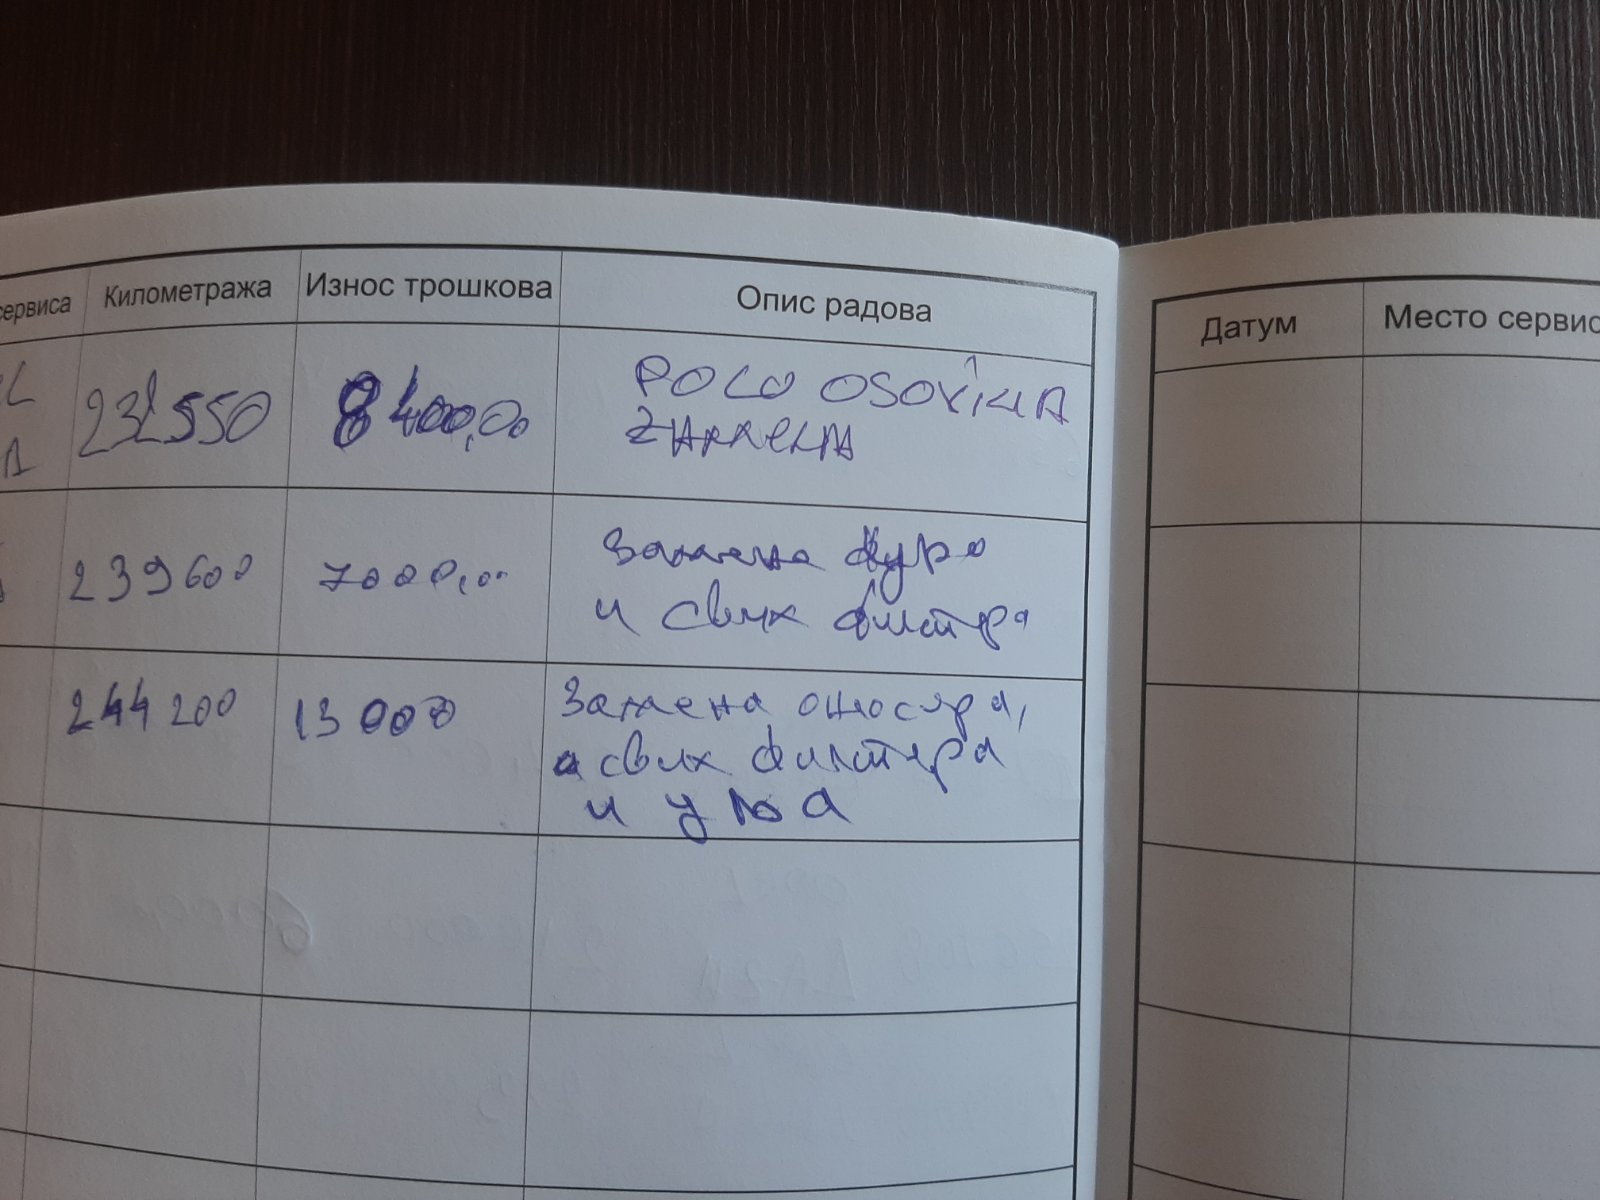 сервиса Километража Износ трошкова Опис радова
232550 8400,00 POLO OSOVINA
ZAMENA
239600 7000,00 Замена
и свих филтера
244200 13000 Замена
свих филтера
и уља
Датум Место сервис